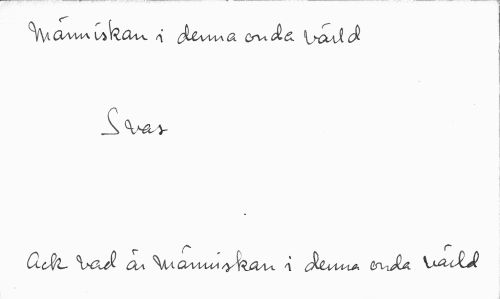 Människan i denna onda värld
Svar
Ack vad är Människan i denna onda värld